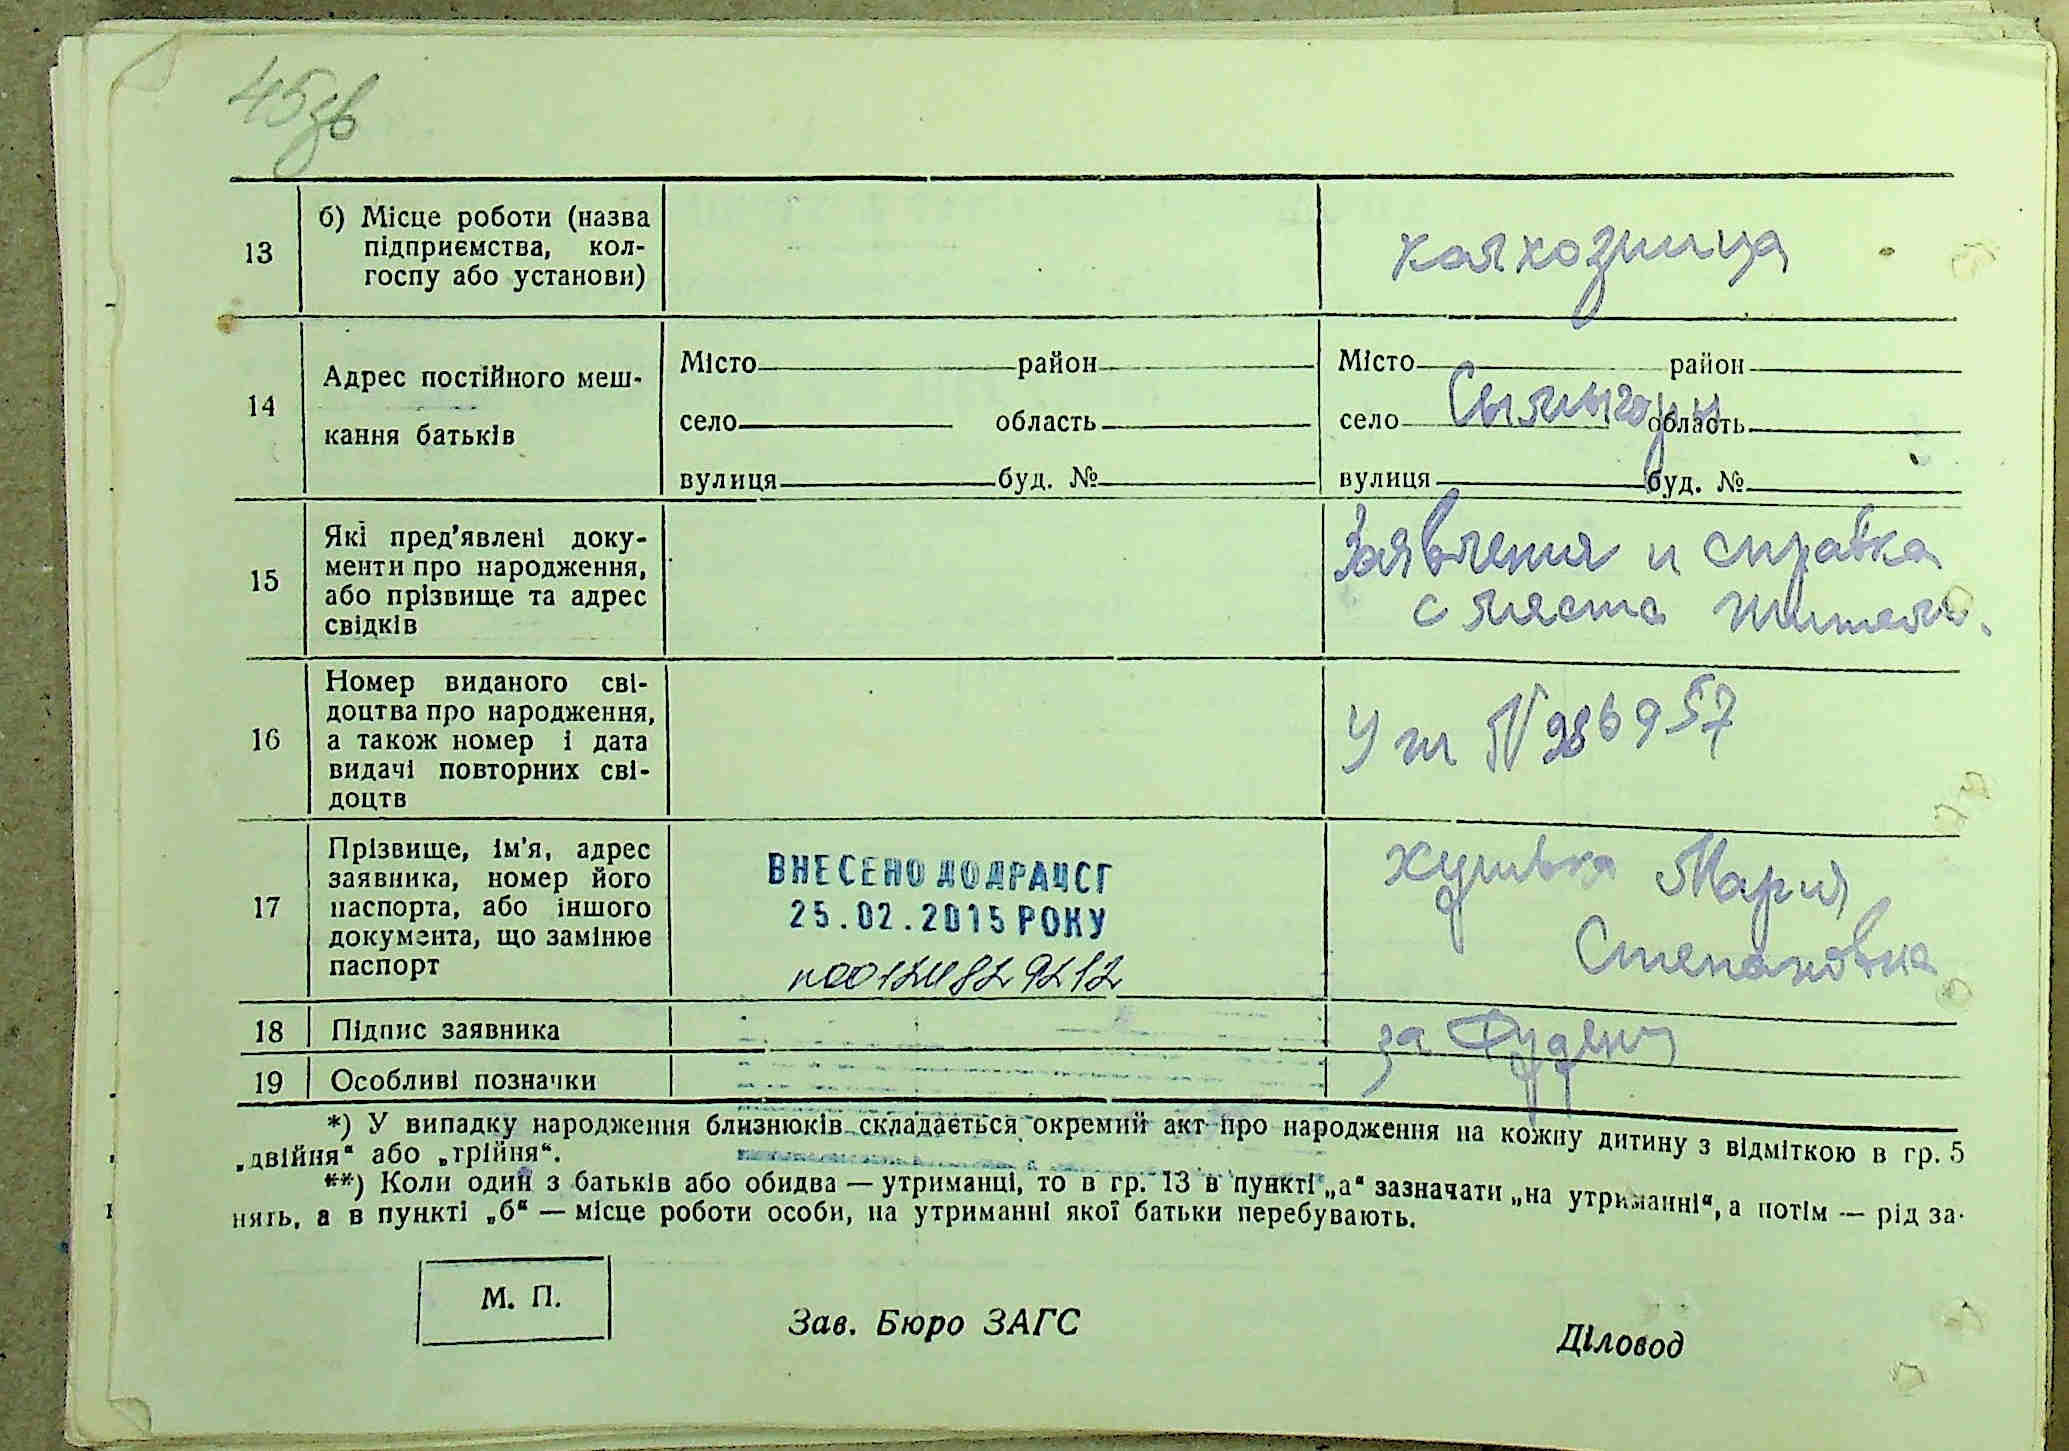 45зв
13
б) Місце роботи (назва
підприємства, кол-
госпу або установи)
колхозница
14
Адрес постійного меш-
кання батьків
Місто район
село область
вулиця буд. №
Місто район
село область
вулиця буд. №
15
Які пред'явлені доку-
менти про народження,
або прізвище та адрес
свідків
Заявления и справка
с места
16
Номер виданого сві-
доцтва про народження,
а також номер і дата
видачі повторних сві-
доцтв
N 286957
17
Прізвище, ім'я, адрес
заявника, номер його
паспорта, або іншого
документа, що замінює
паспорт
ВНЕСЕНО ДО ДРАЦСГ
25.02.2015 РОКУ
Мария
Степановна
18
Підпис заявника
за
19
Особливі позначки
*) У випадку народження близнюків складається окремий акт про народження на кожну дитину з відміткою в гр. 5
„двійня“ або „трійня“.
**) Коли один з батьків або обидва — утриманці, то в гр. 13 в пункті „а“ зазначати „на утриманні“, а потім — рід за-
нять, а в пункті „б“ — місце роботи особи, на утриманні якої батьки перебувають.
М. П.
Зав. Бюро ЗАГС
Діловод